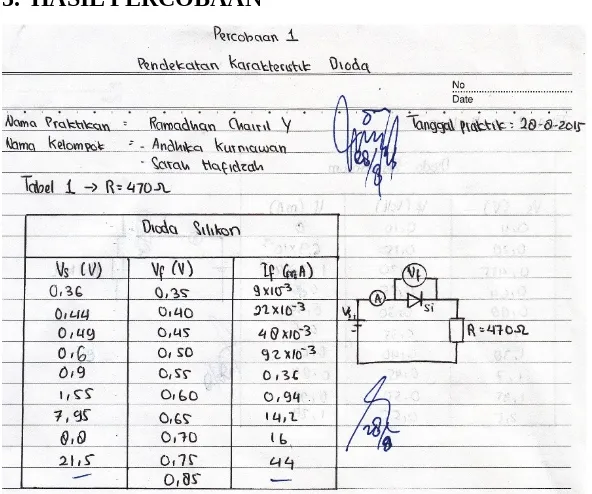 3. HASIL PERCOBAAN
Percobaan 1
Pendekatan Karakteristik Dioda
No
Date
Nama Praktikan : Ramadhan Chairil Y
Tanggal praktik : 28-8-2015
Nama Kelompok : - Andhika Kurniawan
- Sarah Hafidzah
Tabel 1 → R = 470 Ω
Dioda Silikon
Vs (V) Vf (V) If (mA)
0,36 0,35 9x10⁻³
0,44 0,40 22x10⁻³
0,49 0,45 48x10⁻³
0,6 0,50 92x10⁻³
0,9 0,55 0,36
1,55 0,60 0,94
7,95 0,65 14,2
8,8 0,70 16
21,5 0,75 44
— 0,85 —
Vf
A
Si
Vs
R = 470 Ω
28/8
28/8